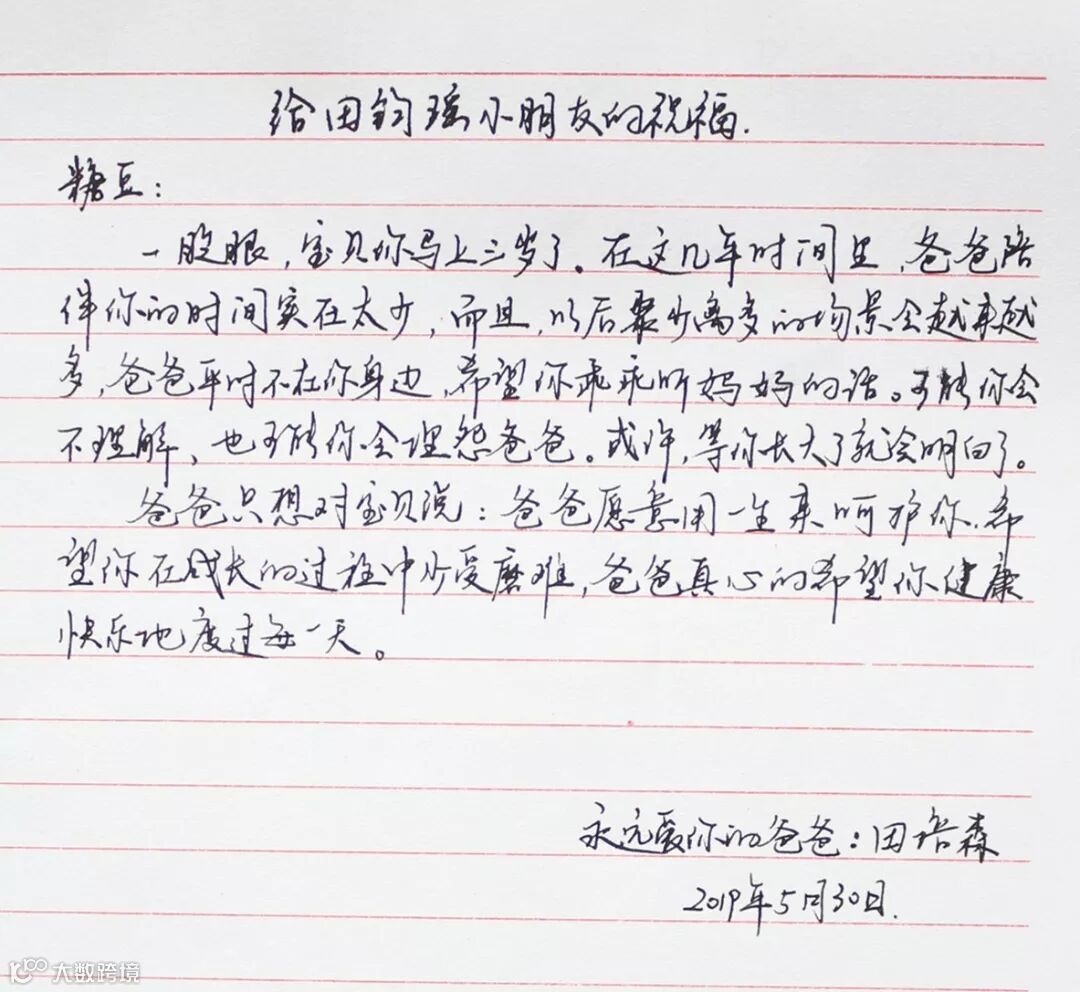 给田钧瑶小朋友的祝福.
糖豆：
一眨眼，宝贝你马上三岁了。在这几年时间里，爸爸陪
伴你的时间实在太少，而且，以后聚少离多的场景会越来越
多，爸爸平时不在你身边，希望你乖乖听妈妈的话。可能你会
不理解、也可能你会埋怨爸爸。或许，等你长大了就会明白了。
爸爸只想对宝贝说：爸爸愿意用一生来呵护你，希
望你在成长的过程中少受磨难，爸爸真心的希望你健康
快乐地度过每一天。
永远爱你的爸爸：田培森
2019年5月30日.
大数跨境